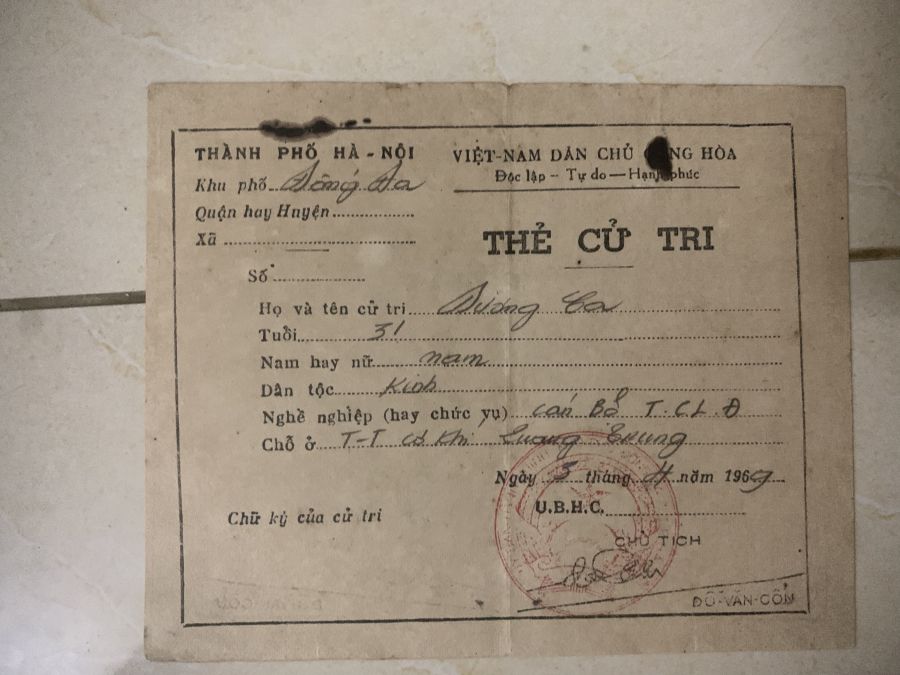 THÀNH PHỐ HÀ-NỘI
Khu phố Đống Đa
Quận hay Huyện
Xã
VIỆT-NAM DÂN CHỦ CỘNG HÒA
Độc lập - Tự do - Hạnh phúc
THẺ CỬ TRI
Số
Họ và tên cử tri Dương Ca
Tuổi 31
Nam hay nữ nam
Dân tộc Kinh
Nghề nghiệp (hay chức vụ) cán Bộ T.C.L.Đ
Chỗ ở T-T cơ Khí Quang Trung
Ngày 5 tháng 4 năm 1969
U.B.H.C.
Chữ ký của cử tri
CHỦ TỊCH
ĐỖ-VĂN-CỔN